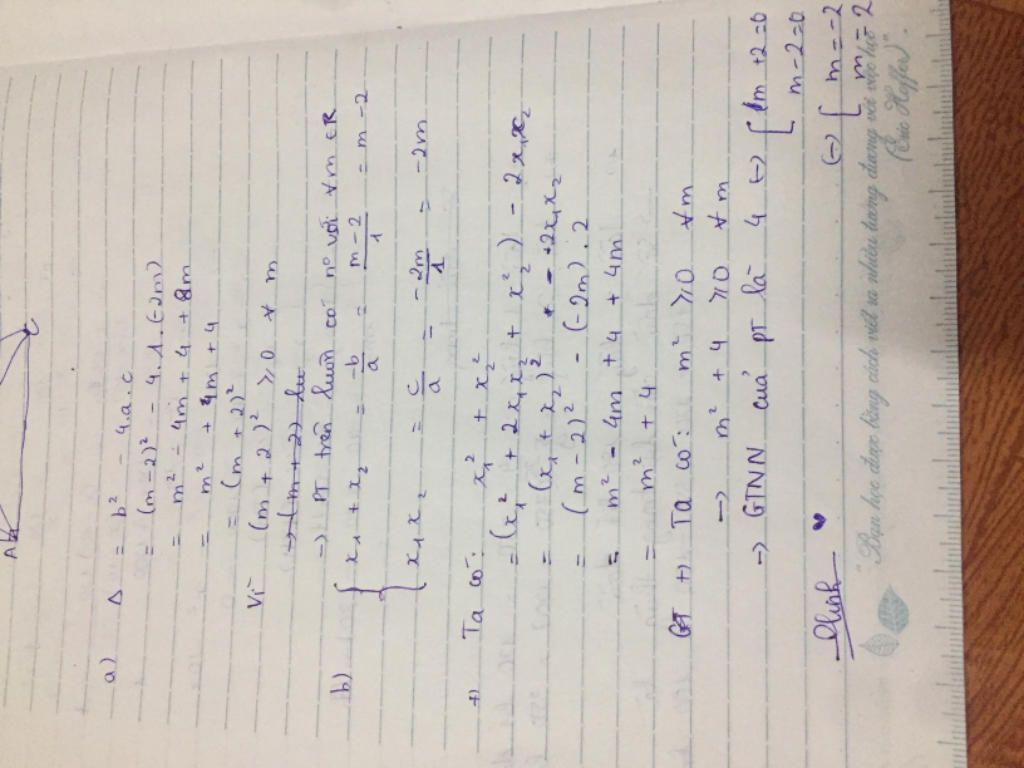 A
C
a) Δ = b² - 4.a.c
= (m-2)² - 4.1.(-2m)
= m² - 4m + 4 + 8m
= m² + 4m + 4
= (m+2)²
Vì (m+2)² ≥ 0 ∀ m
→ (m+2)
→ PT trên luôn có n⁰ với ∀m ∈ R
b) { x₁ + x₂ = -b/a = m-2/1 = m-2
{ x₁x₂ = c/a = -2m/1 = -2m
+) Ta có: x₁² + x₂²
= (x₁² + 2x₁x₂ + x₂²) - 2x₁x₂
= (x₁ + x₂)² - 2x₁x₂
= (m-2)² - (-2m).2
= m² - 4m + 4 + 4m
= m² + 4
+) Ta có: m² ≥ 0 ∀m
→ m² + 4 ≥ 0 ∀m
→ GTNN của PT là 4 ↔ [ m+2=0
m-2=0
↔ [ m=-2
m=2
"Bạn học được bằng cách viết ra nhiều tương đương với việc học
(Eric Hoffer)".